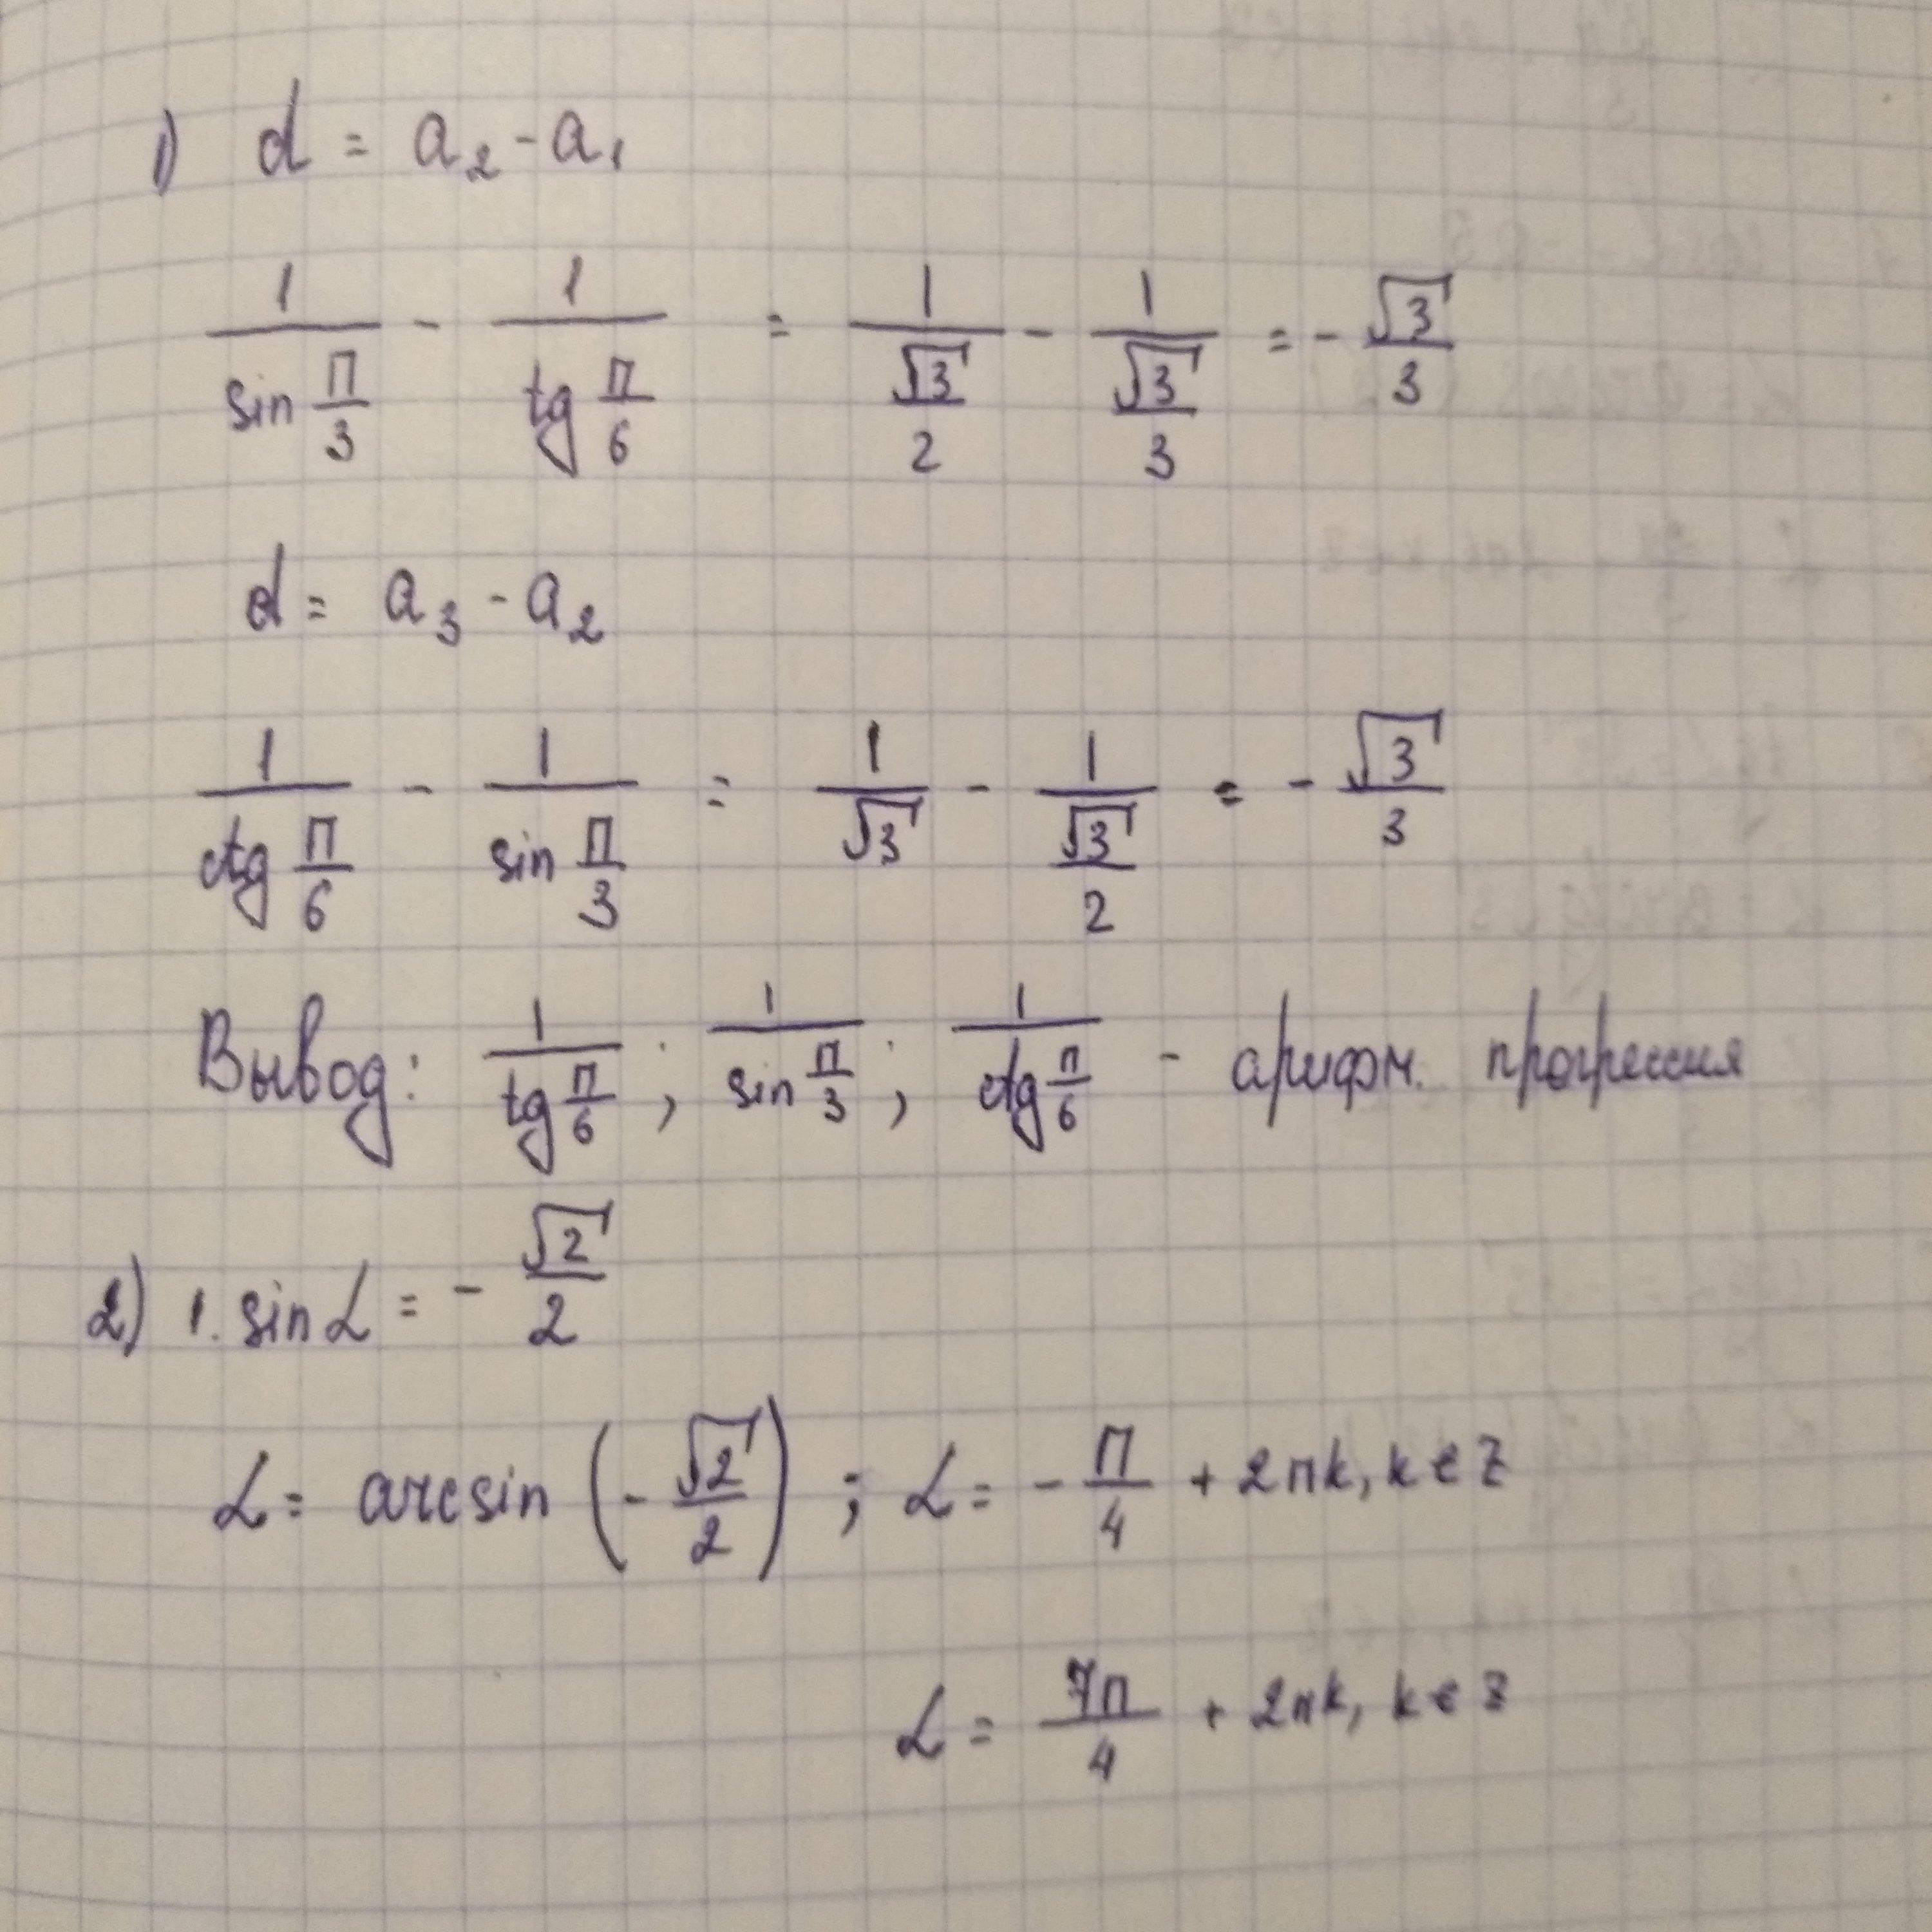 1) d = a₂ - a₁
1/(sin π/3) - 1/(tg π/6) = 1/(√3/2) - 1/(√3/3) = - √3/3
d = a₃ - a₂
1/(ctg π/6) - 1/(sin π/3) = 1/√3 - 1/(√3/2) = - √3/3
Вывод: 1/(tg π/6); 1/(sin π/3); 1/(ctg π/6) - арифм. прогрессия
2) 1. sin α = - √2/2
α = arcsin (- √2/2); α = - π/4 + 2πk, k ∈ Z
α = 7π/4 + 2πk, k ∈ Z